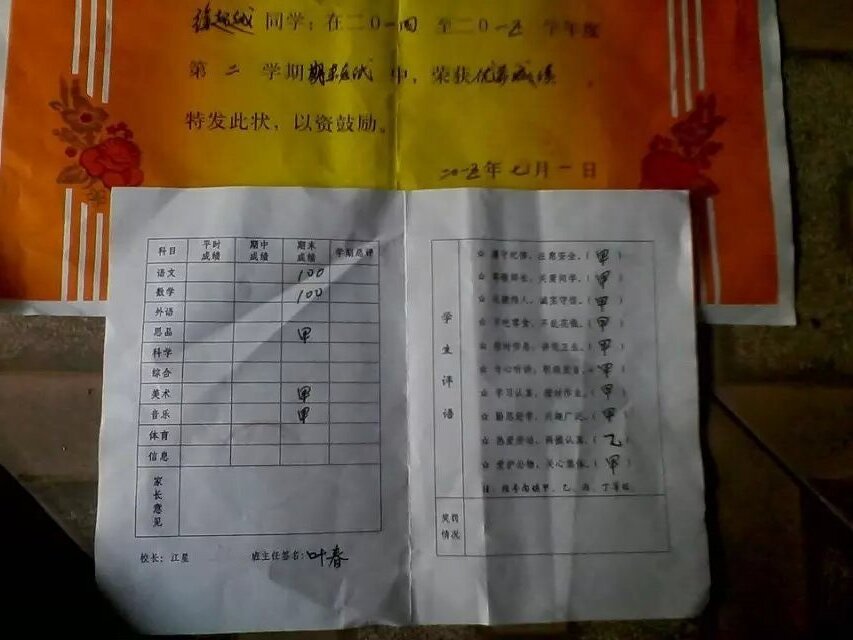 同学：在二〇一四至二〇一五学年度
第二学期期末考试中，荣获优异成绩
特发此状，以资鼓励。
二〇一五年七月一日
科目 平时成绩 期中成绩 期末成绩 学期总评
语文 100
数学 100
外语
思品 甲
科学
综合
美术 甲
音乐 甲
体育
信息
家长意见
校长：江星 班主任签名：叶春
学生评语
☆ 遵守纪律，注意安全。（甲）
☆ 尊敬师长，关爱同学。（甲）
☆ 礼貌待人，诚实守信。（甲）
☆ 不吃零食，不乱花钱。（甲）
☆ 按时作息，讲究卫生。（甲）
☆ 专心听讲，积极发言。（甲）
☆ 学习认真，按时作业。（甲）
☆ 勤思好学，兴趣广泛。（甲）
☆ 热爱劳动，（乙）
☆ 爱护公物，关心集体。（甲）
甲、乙、丙、丁等级
奖罚情况